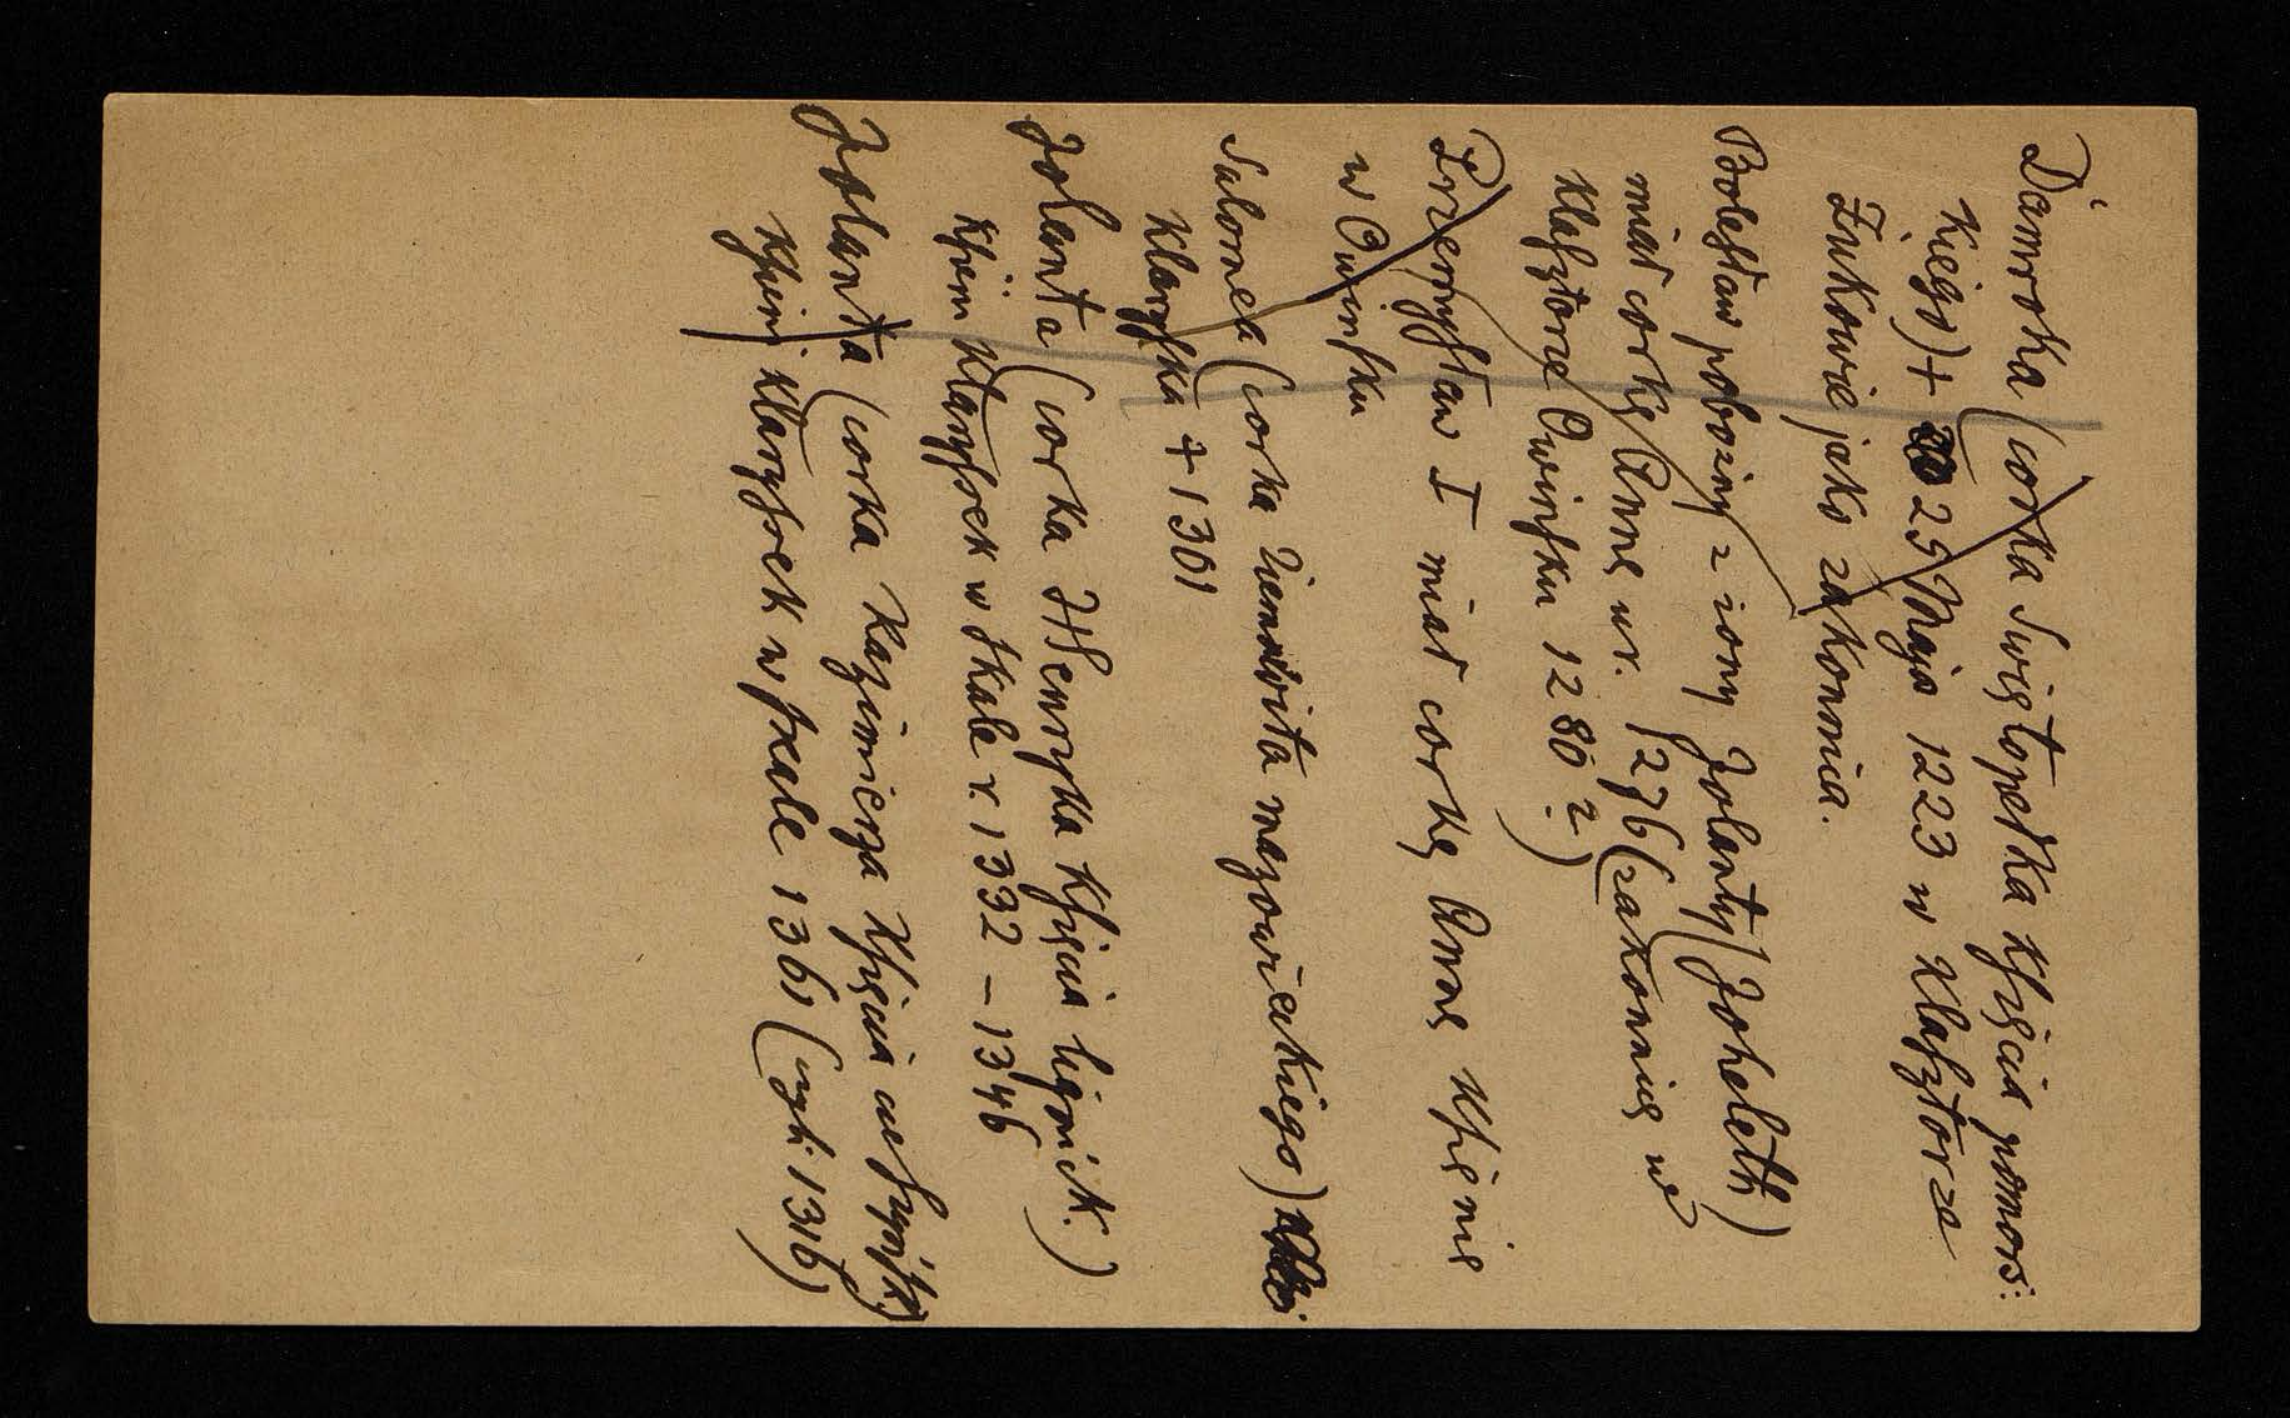 Damroka (corka Swiętopełka Kſięcia pomors:
kiego) + 25 Maja 1223 w Klaſztorze
Żukowie jako zakonnica.
Bolesław pobożny z żony Jolanty (Joheleth)
miał corkę Annę ur. 1276 (zakonnicę w
Klaſztorze Owinſku 1280?)
Przemyſław I miał corkę Annę Kſienię
w Owinſku
Salomea (corka Ziemowita mazowieckiego)
Klaryſka + 1301
Jolanta (corka Henryka Kſięcia lignick.)
Kſieni Klaryſsek w Skale r. 1332 – 1346
Jolanta (corka Kazimierza Kſięcia
Kſieni Klaryſsek w ſkale 1361 (myli 1316)